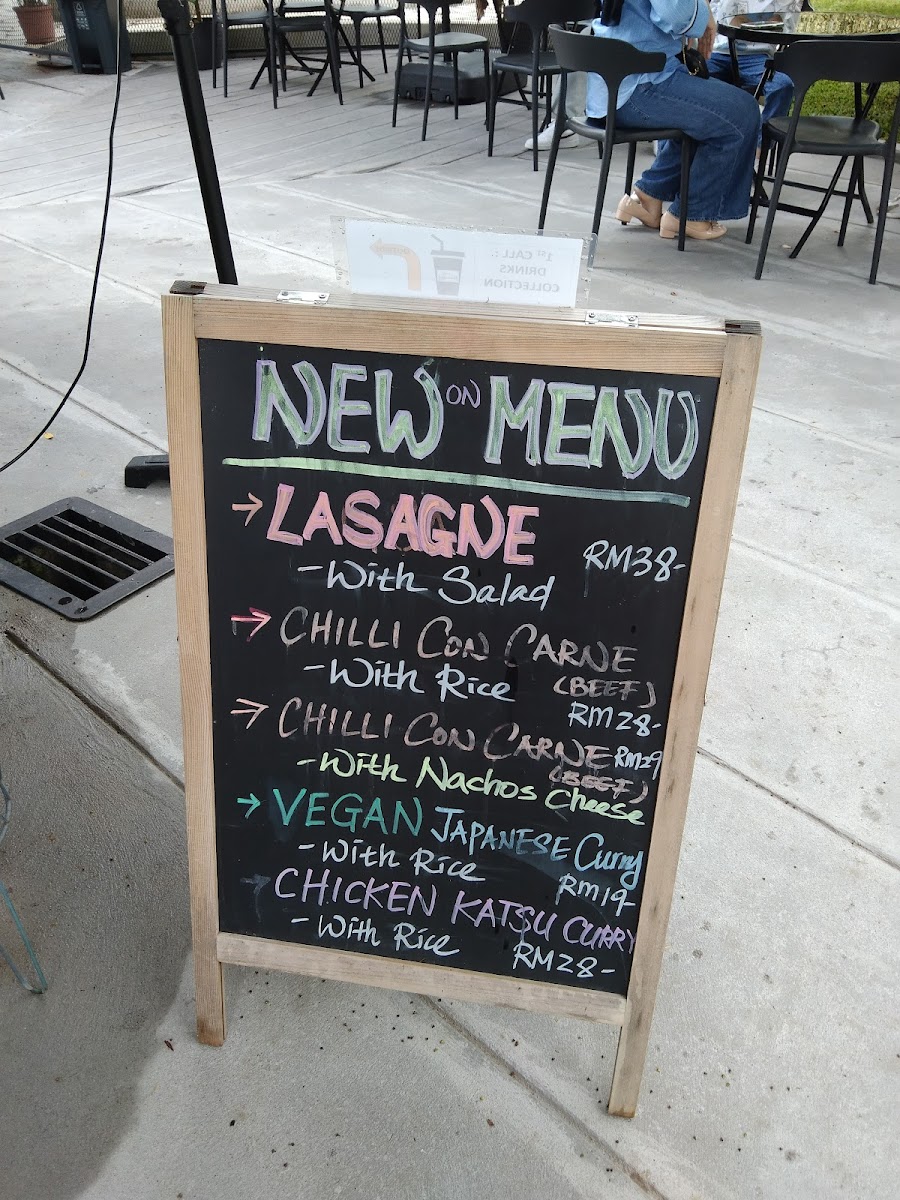 1ST CALL :
DRINKS
COLLECTION
NEW ON MENU
→ LASAGNE
RM38-
- With Salad
→ CHILLI CON CARNE
- With Rice (BEEF)
RM28-
→ CHILLI CON CARNE RM29
(BEEF)
- With Nachos Cheese
→ VEGAN JAPANESE Curry
- With Rice
RM19-
→ CHICKEN KATSU CURRY
- With Rice
RM28-